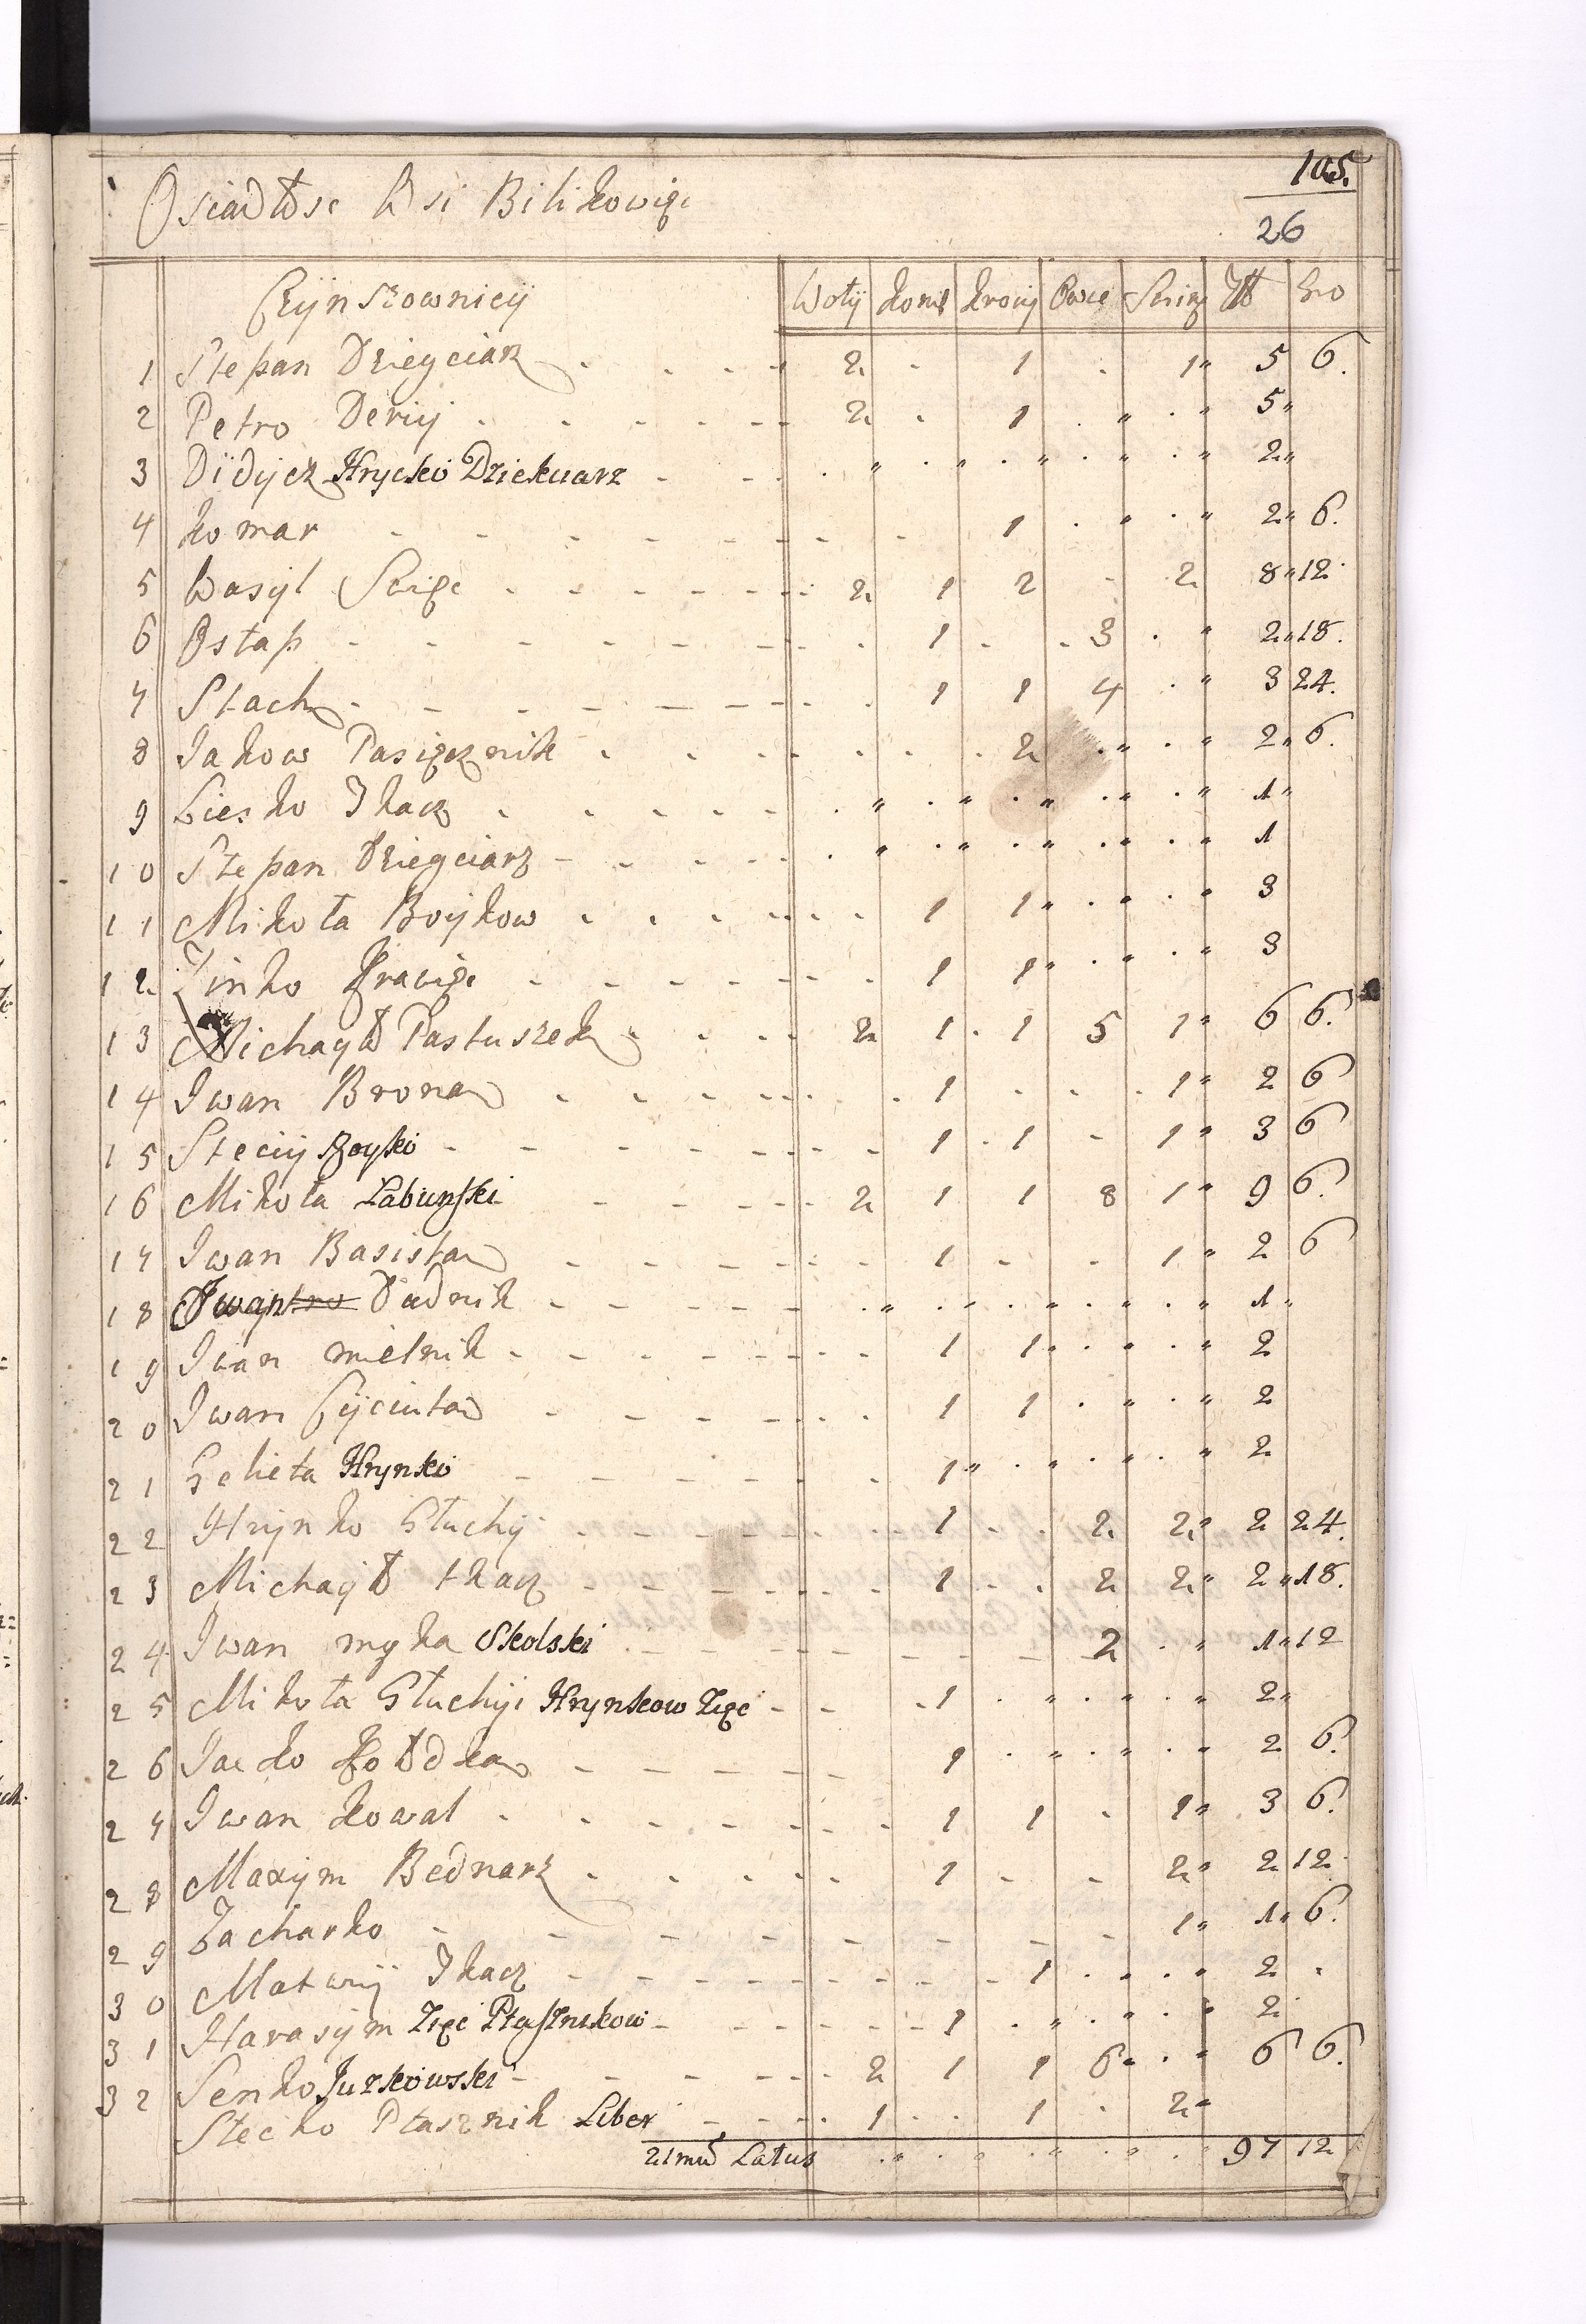 105.
26
Osiadłosc Wsi Bilikowięc
Czÿnszownicÿ Wołÿ Konie Krowÿ Owce Swinie Zł Gro
1 Stepan Dziegciarz 2 1 1 5 6.
2 Petro Deriÿ 2 1 5
3 Didÿcz Hrycko Dziekciarz 2
4 Komar 1 2 6.
5 Wasÿl 2 1 2 2 8 12
6 Ostap 1 3 2 18.
7 Stach 1 1 4 3 24.
8 Jakow Pasiecznik 2 2 6.
9 Liesko Tkacz 1
10 Stepan Dziegciarz 1
11 Mikoła Boÿkow 1 1 3
12 Zinko Krawiec 1 1 3
13 Michaÿło Pastuszek 2 1 1 5 1 6 6.
14 Iwan Brona 1 1 2 6
15 Steciÿ 1 1 1 3 6
16 Mikoła Labunski 2 1 1 8 1 9 6.
17 Iwan Basista 1 1 2 6
18 Iwan Dudnik 1
19 Iwan mielnik 1 1 2
20 Iwan Cÿciuła 1 1 2
21 Hrynko 1 2
22 Hrÿnko Głuchÿ 1 2 2 2 24.
23 Michaÿło tkacz 1 2 2 2 18.
24 Iwan myka Skolski 2 1 12
25 Mikoła Głuchÿi Hrynkow Zięć 1 2
26 Jacko Kołodka 1 2 6.
27 Iwan Kowal 1 1 1 3 6.
28 Maxÿm Bednarz 1 2 2 12
29 Zacharko 1 1 6.
30 Matwiÿ Tkacz 1 2
31 Harasÿm Zięć Ptasznikow 1 2
32 Senko Juzkowski 2 1 1 6 6 6.
Stecko Ptasznik Liber 1 1 2
Latus 97 12